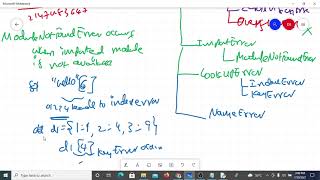 Microsoft Whiteboard
2147483647
ModuleNotFoundError occurs
when imported module
is not available
"hello"[6]
01234 leads to index error
d1 = {1:1, 2:4, 3:9}
d1[4] KeyError occurs
ImportError
ModuleNotFoundError
LookupError
IndexError
KeyError
NameError